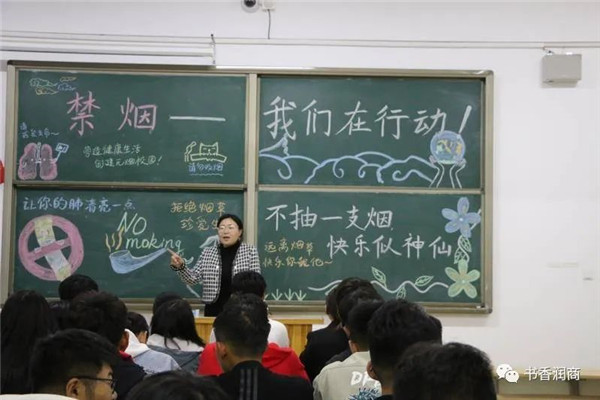 禁烟—
我们在行动！
营造健康生活
创建无烟校园！
请勿吸烟
让你的肺清亮一点
NO
smoking
拒绝烟草
珍爱生
不抽一支烟
快乐似神仙
远离烟草
快乐你我他~
书香润商